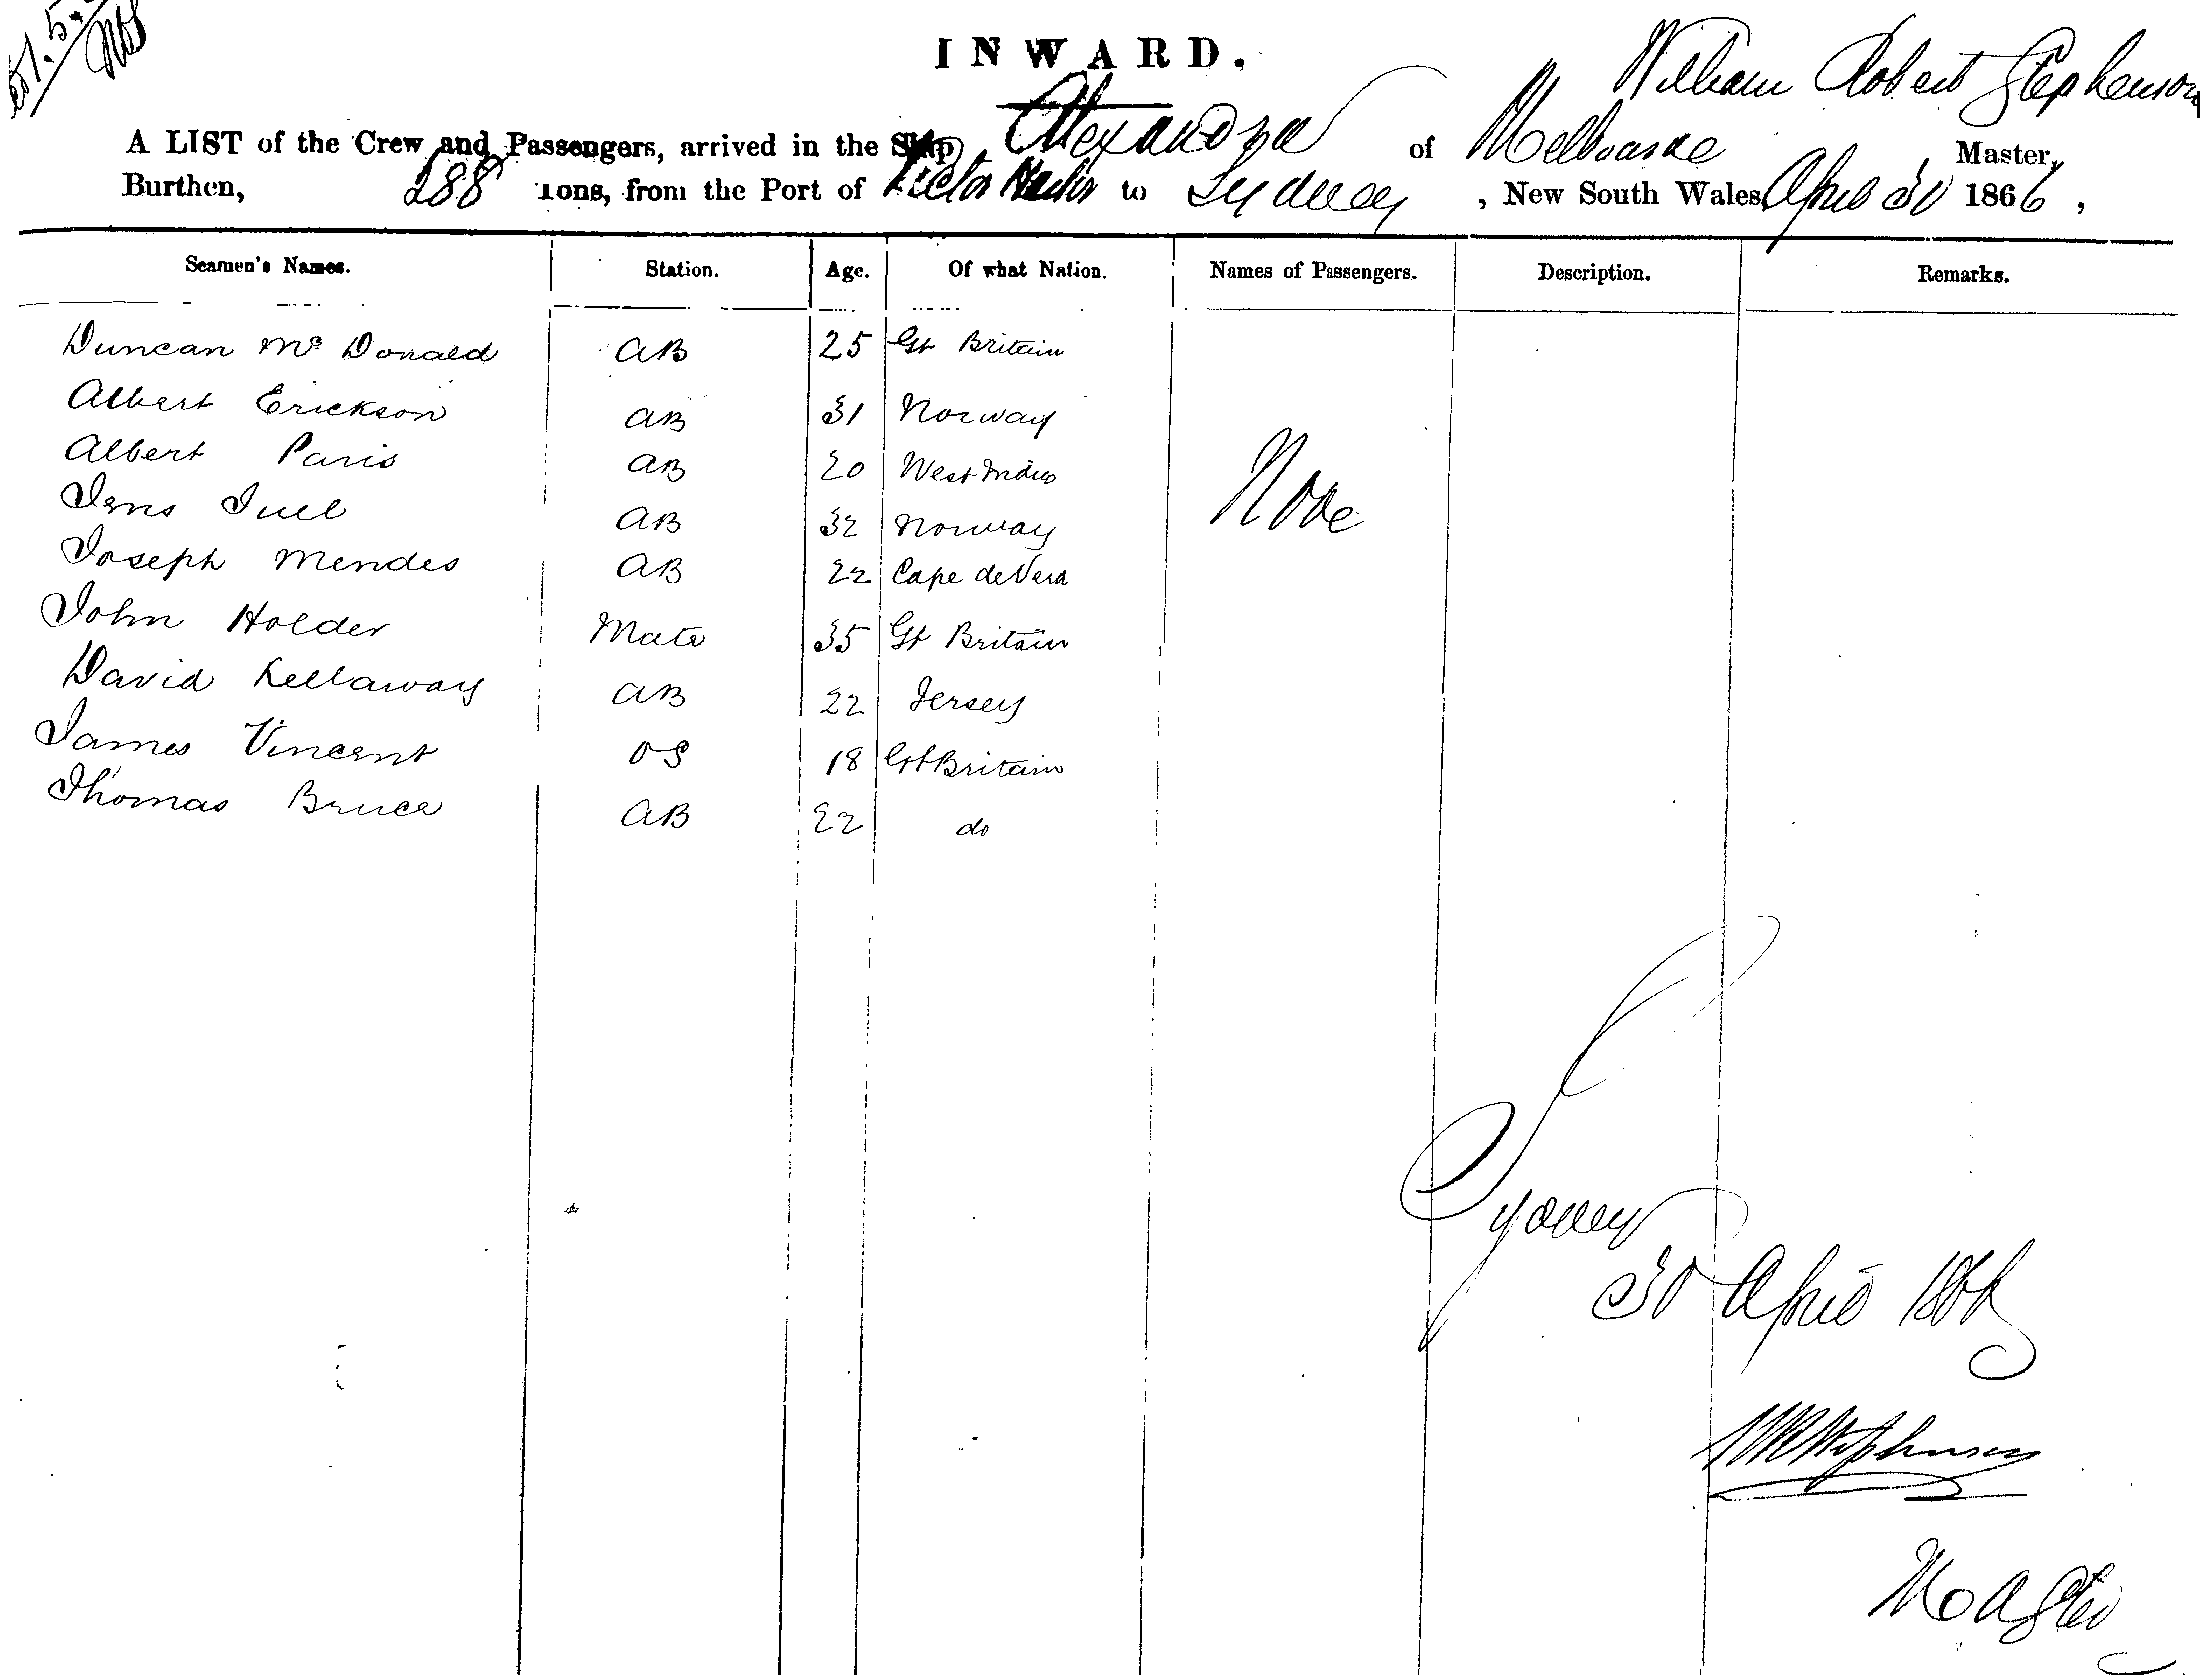 INWARD.
William Robert Stephenson
A LIST of the Crew and Passengers, arrived in the Ship Alexandra of Melbourne , Master,
Burthen, 288 Tons, from the Port of Victor Harbor to Sydney , New South Wales, April 30 1866 ,
Seamen's Names. Station. Age. Of what Nation. Names of Passengers. Description. Remarks.
Duncan Mc Donald AB 25 Gt Britain
Albert Erickson AB 31 Norway
Albert Paris AB 20 West Indies
None
Jens Juel AB 32 Norway
Joseph Mendes AB 22 Cape de Verd
John Holder Mate 35 Gt Britain
David Kellaway AB 22 Jersey
James Vincent OS 18 Gt Britain
Thomas Bruce AB 22 do
Sydney
30 April 1866
WR Stephenson
Master